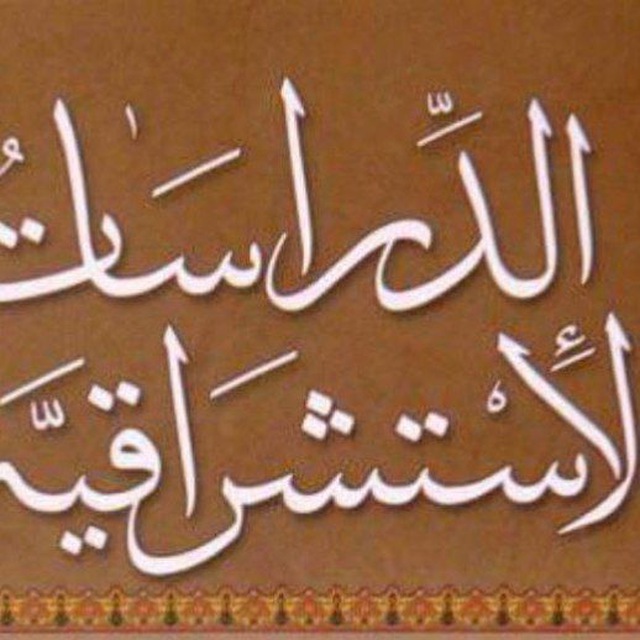 الدِّراسَاتُ
الإسْتشرَاقيَّة